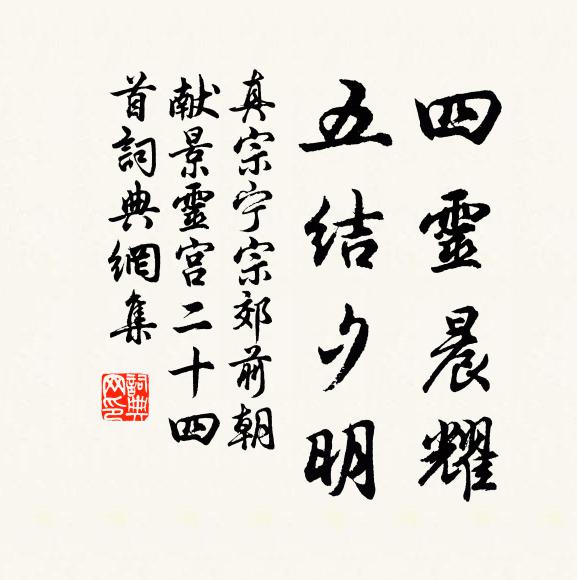 四靈晨耀
五结夕明
真宗宁宗郊前朝
献景靈宫二十四
首詞典網集
詞典网印